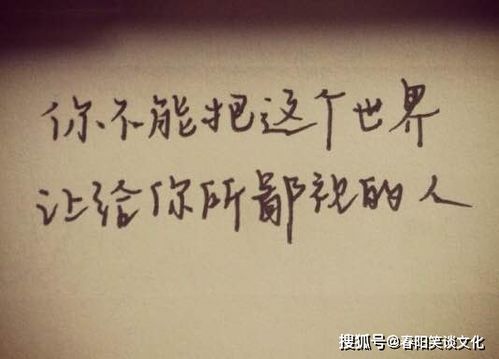 你不能把这个世界
让给你所鄙视的人
搜狐号@春阳笑谈文化